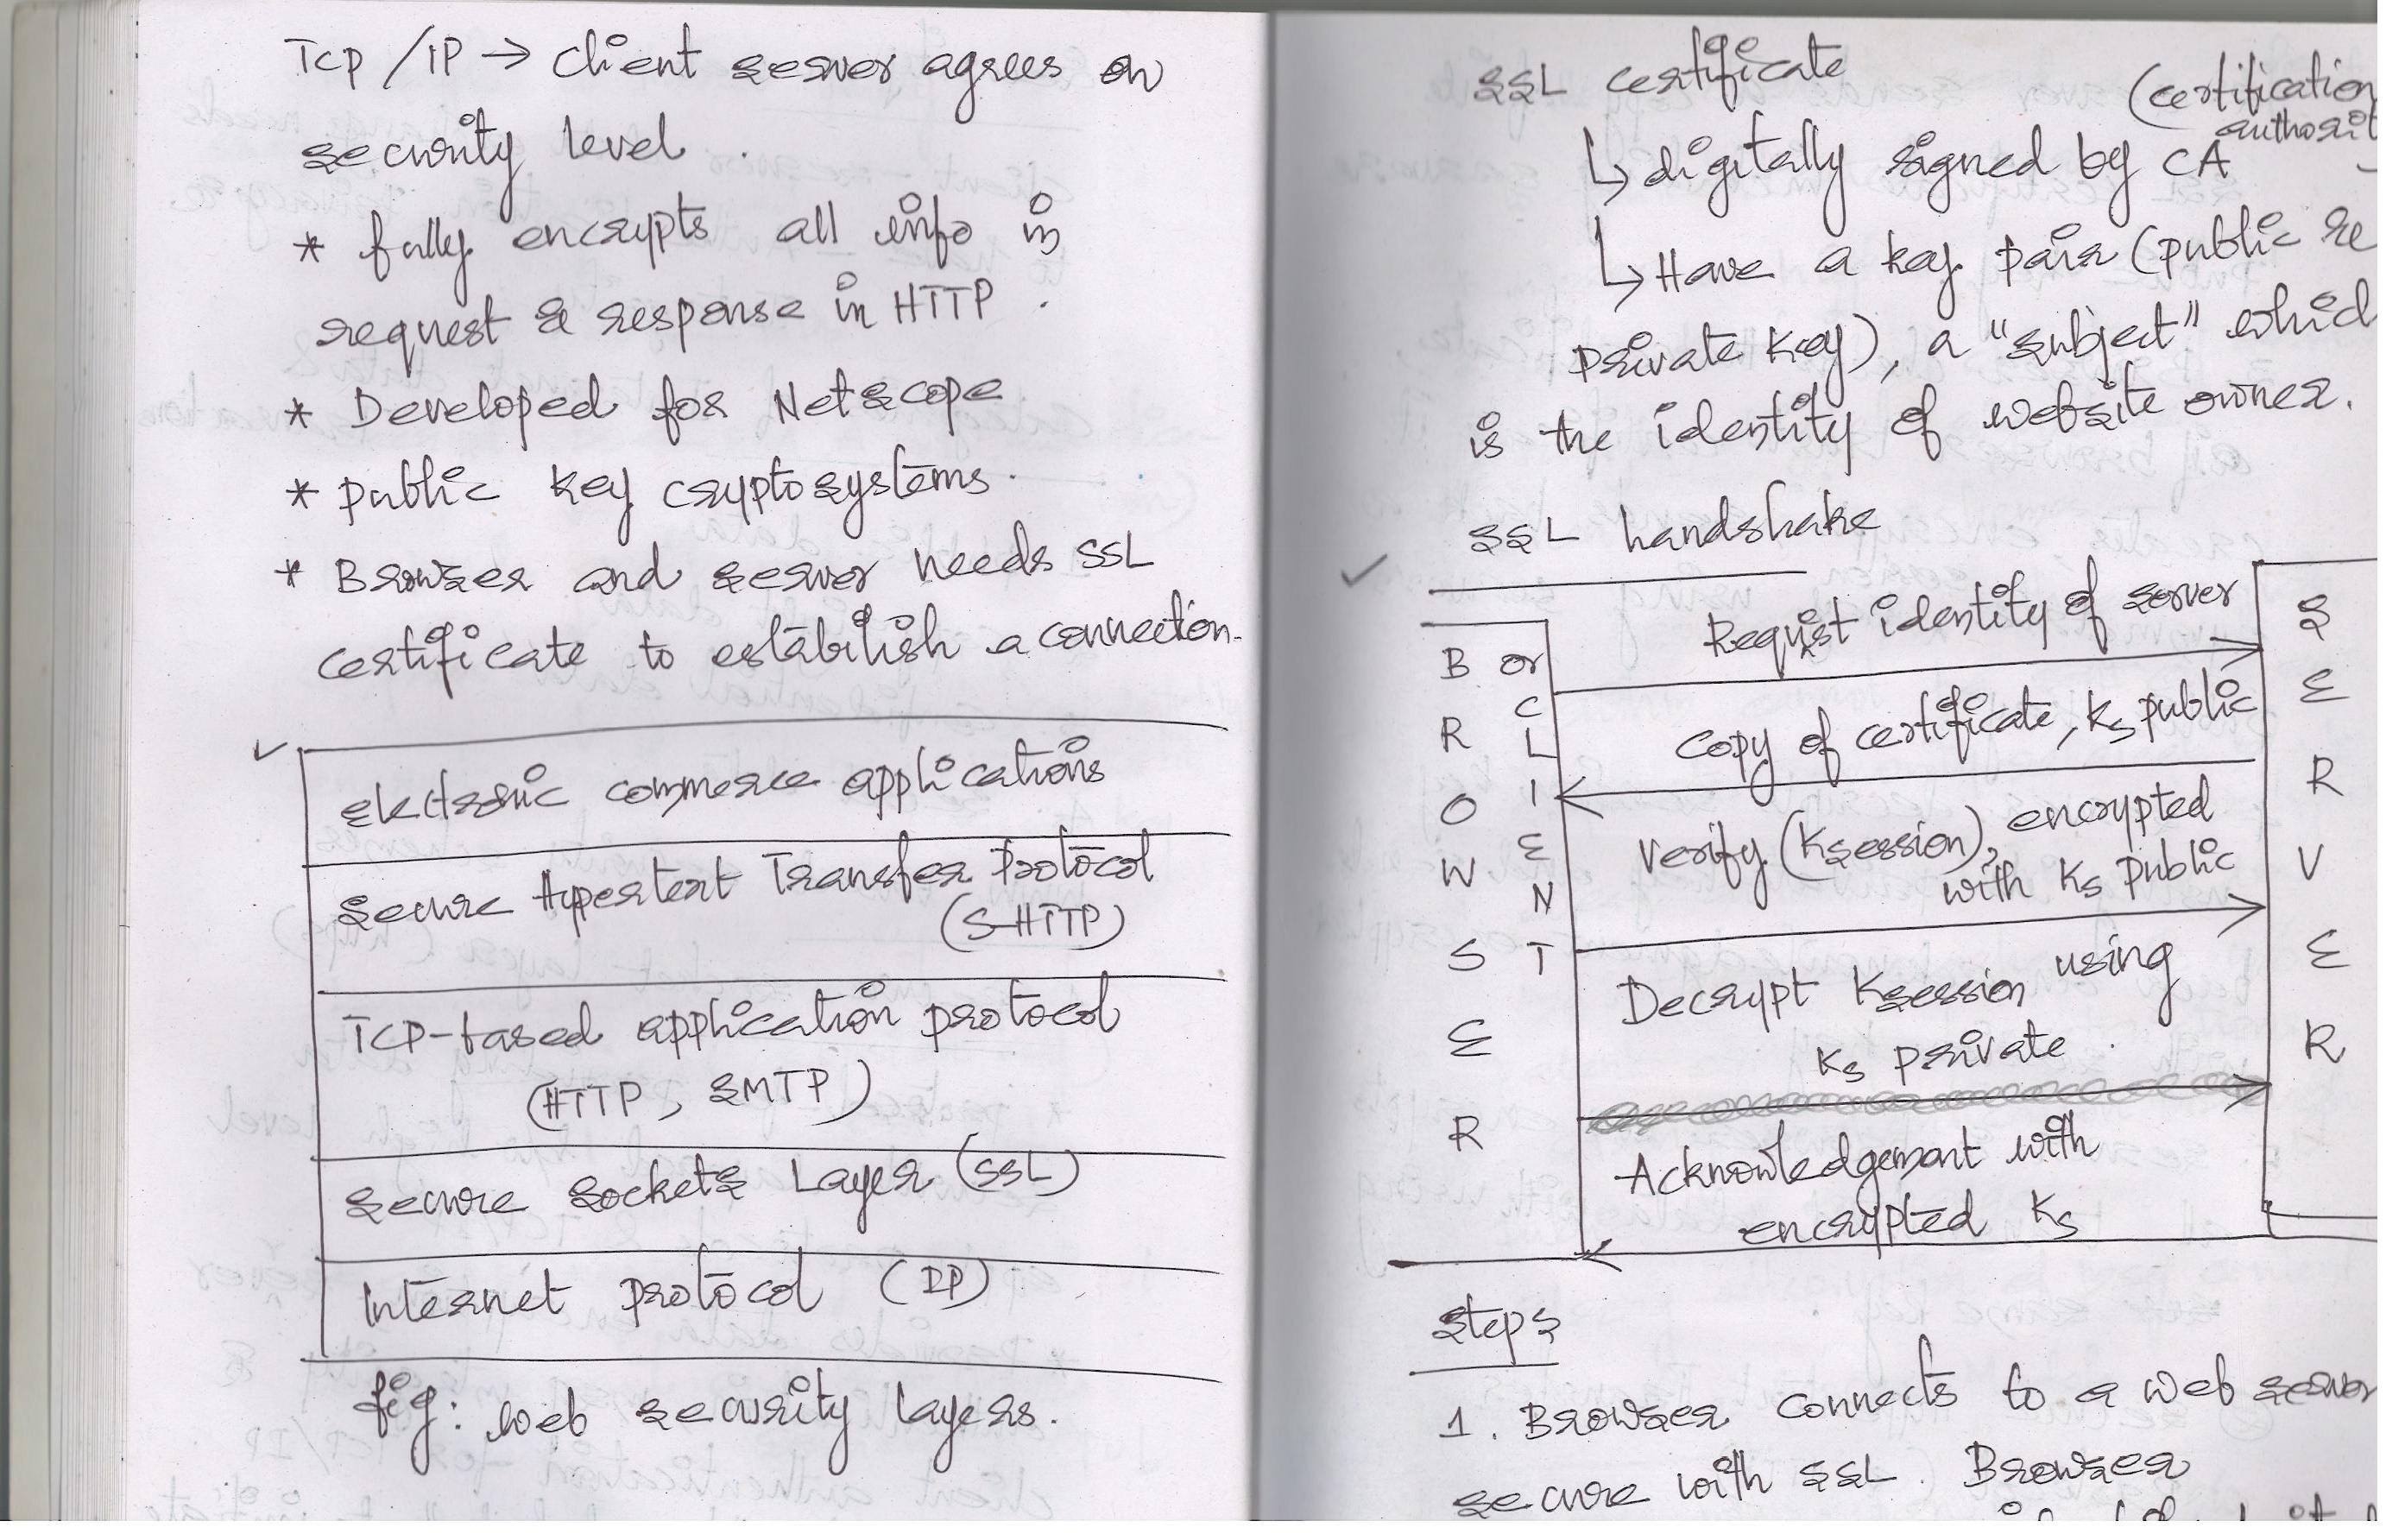 TCP/IP → client server agrees on
security level.
* fully encrypts all info in
request & response in HTTP.
* Developed for Netscope
* public key cryptosystems.
* Browser and server needs SSL
certificate to establish a connection.
electronic commerce applications
Secure Hypertext Transfer Protocol
(S-HTTP)
TCP-based application protocol
(HTTP, SMTP)
Secure Sockets Layer (SSL)
Internet protocol (IP)
fig: web security layers.
SSL certificate
(certification
authorit
↳ digitally signed by CA
↳ Have a key pair (public &
private key), a "subject" which
is the identity of website owner.
SSL handshake
BROWSER
or CLIENT
SERVER
Request identity of server
Copy of certificate, Ks public
Verify (Ksession), encrypted
with Ks public
Decrypt Ksession using
Ks private.
Acknowledgement with
encrypted Ks
Steps
1. Browser connects to a web server
secure with SSL. Browser